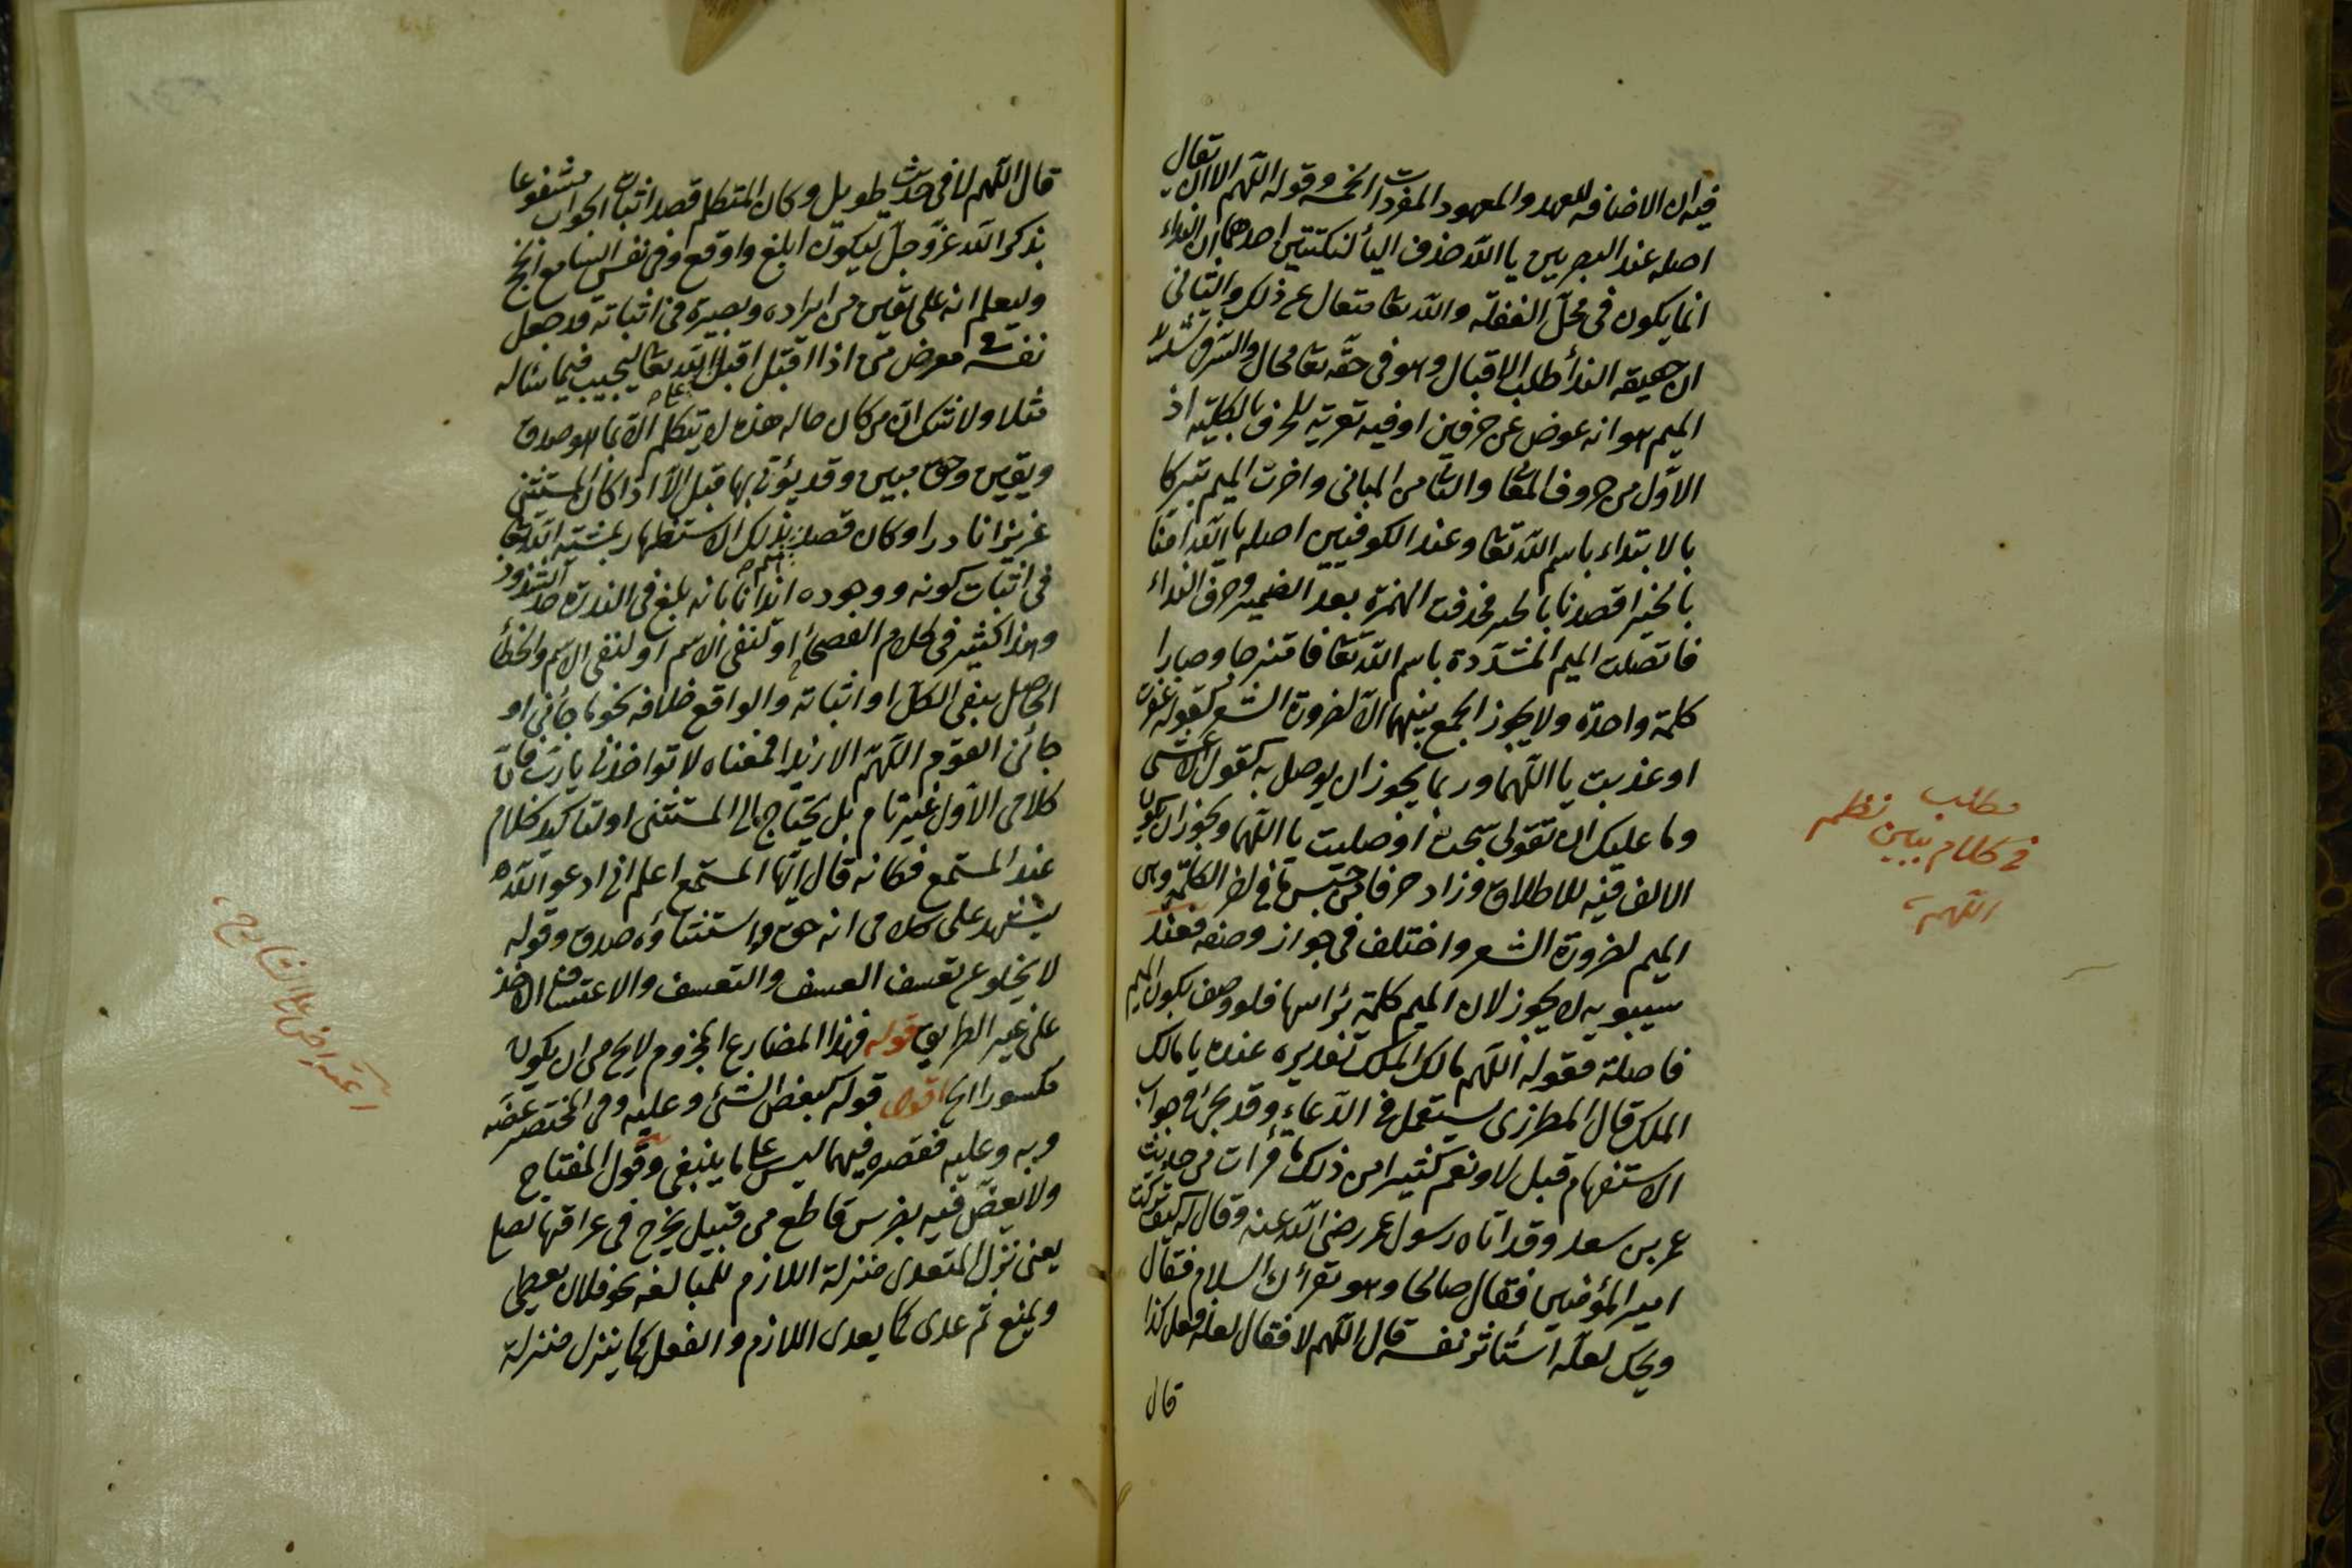 فيه ان الاضافه للعهد والمعهود المفردات الخمسة وقوله اللهم الا ان يقال
اصله عند البصريين يا الله حذف اليأ لنكتتين احدهما ان النداء
انما يكون فى محل الغفلة والله تعا متعال عن ذلك والثانى
ان حقيقة الندأ طلب الاقبال وهو فى حقه تعا محال والسر فى تشديد
الميم هو انه عوض عن حرفين او فيه تعرية للحرف بالكلية اذ
الاول من حروف المعانى والثانى من المبانى واخرت الميم تبركا
بالابتداء باسم الله تعا وعند الكوفيين اصله يا الله امنا
بالخير اقصدنا بالخير فحذفت الهمزة بعد الضمير وحرف النداء
فاتصلت الميم المشددة باسم الله تعا فامتزجا وصارا
كلمة واحدة ولا يجوز الجمع بينهما الا لضرورة الشعر كقوله غفرت
او عذبت يا اللهما وربما يجوز ان يوصل به كقول الاعشى
وما عليك ان تقولى سبحت او صليت يا اللهما ويجوز ان يكون
الالف فيه للاطلاق وزاد حرفا من جنس ما فى اخر الكلمة وهى
الميم لضرورة الشعر واختلف فى جواز وصفه فعند
سيبويه لا يجوز لان الميم كلمة برأسها فلو وصف يكون الميم
فاصلة فقوله اللهم مالك الملك تقديره عنده يا مالك
الملك قال المطرزى يستعمل فى الدعاء وقد يجئ فى جواب
الاستفهام قبل لا ونعم كثيرا من ذلك ما قرأت فى حديث
عمر بن سعد وقد اتاه رسول عمر رضى الله عنه وقال له كيف تركت
امير المؤمنين فقال صالحا وهو يقرأك السلام فقال
ويحك لعله استأثر نفسه قال اللهم لا فقال لعله فعل كذا
قال
مطلب
فى كلام يبين نظم
اللهم
قال اللهم لا فى حديث طويل وكان المتكلم قصد اثبات الجواب مشفوعا
بذكر الله عز وجل ليكون ابلغ واوقع وفى نفس السامع انجح
وليعلم انه على يقين من ايراده وبصيرة فى اثباته قد جعل
نفسه فى معرض من اذا اقبل اقبل الله تعا ليجيب فيما سأله
مثلا ولا شك ان من كان حاله هذه لا يتكلم الا بما هو صدق
ويقين وحق مبين وقد يؤتى بها قبل الا اذا كان المستثنى
عزيزا نادرا وكان قصده بذلك الاستظهار بمشية الله تعا
فى اثبات كونه ووجوده ايذانا بانه بلغ فى الندرة حد الشذوذ
وهذا كثير فى كلام الفصحأ او لنفى الاسم او لنفى الاسم والخطأ
الحاصل بنفى الكل او اثباته والواقع خلافه نحو ما جأنى او
جأنى القوم اللهم الا زيدا فمعناه لا تواخذنى يا رب فان
كلامى الاول غير تام بل يحتاج الى المستثنى او لتاكيد كلام
عند المستمع فكانه قال ايها المستمع اعلم انى ادعو الله
يشهد على كلامى انه حق واستثناؤه صدق وقوله
لا يخلو عن تعسف العسف والتعسف والاعتساف الاخذ
على غير الطريق قوله فهذا المضارع المجزوم لا يخ من ان يكون
مكسورا الخ اقول قوله كبعض الشئ وعليه وفى المختصر عضه
وبه وعليه فقصره فيهما ليس على ما ينبغى وقول المفتاح
ولا يعض فيه بضرس قاطع من قبيل يخرج فى عراقها نصل
يعنى نزل المتعدى منزلة اللازم للمبالغه نحو فلان يعطى
ويمنع ثم عدى كما يعدى اللازم والفعل كما ينزل منزلة
اعتراض على الشارح